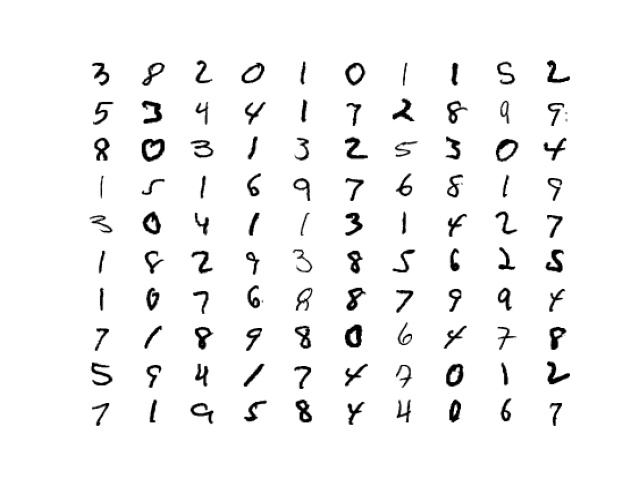 3 8 2 0 1 0 1 1 5 2
5 3 4 4 1 7 2 8 9 9
8 0 3 1 3 2 5 3 0 4
1 5 1 6 9 7 6 8 1 9
3 0 4 1 1 3 1 4 2 7
1 8 2 9 3 8 5 6 2 5
1 0 7 6 8 8 7 9 9 4
7 1 8 9 8 0 6 4 7 8
5 9 4 1 7 4 7 0 1 2
7 1 9 5 8 4 4 0 6 7